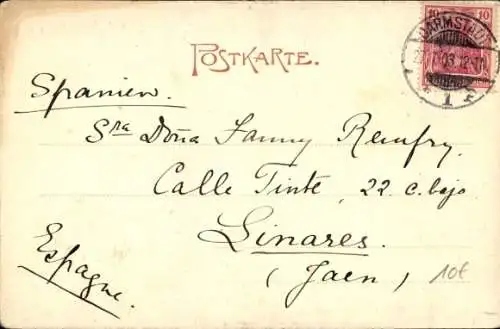 POSTKARTE.
10 10
DARMSTADT
1
Spanien.
Sra Doña Fanny Remfry.
Calle Tinte, 22 c. bajo
Linares.
(Jaen)
Espagne.
10€